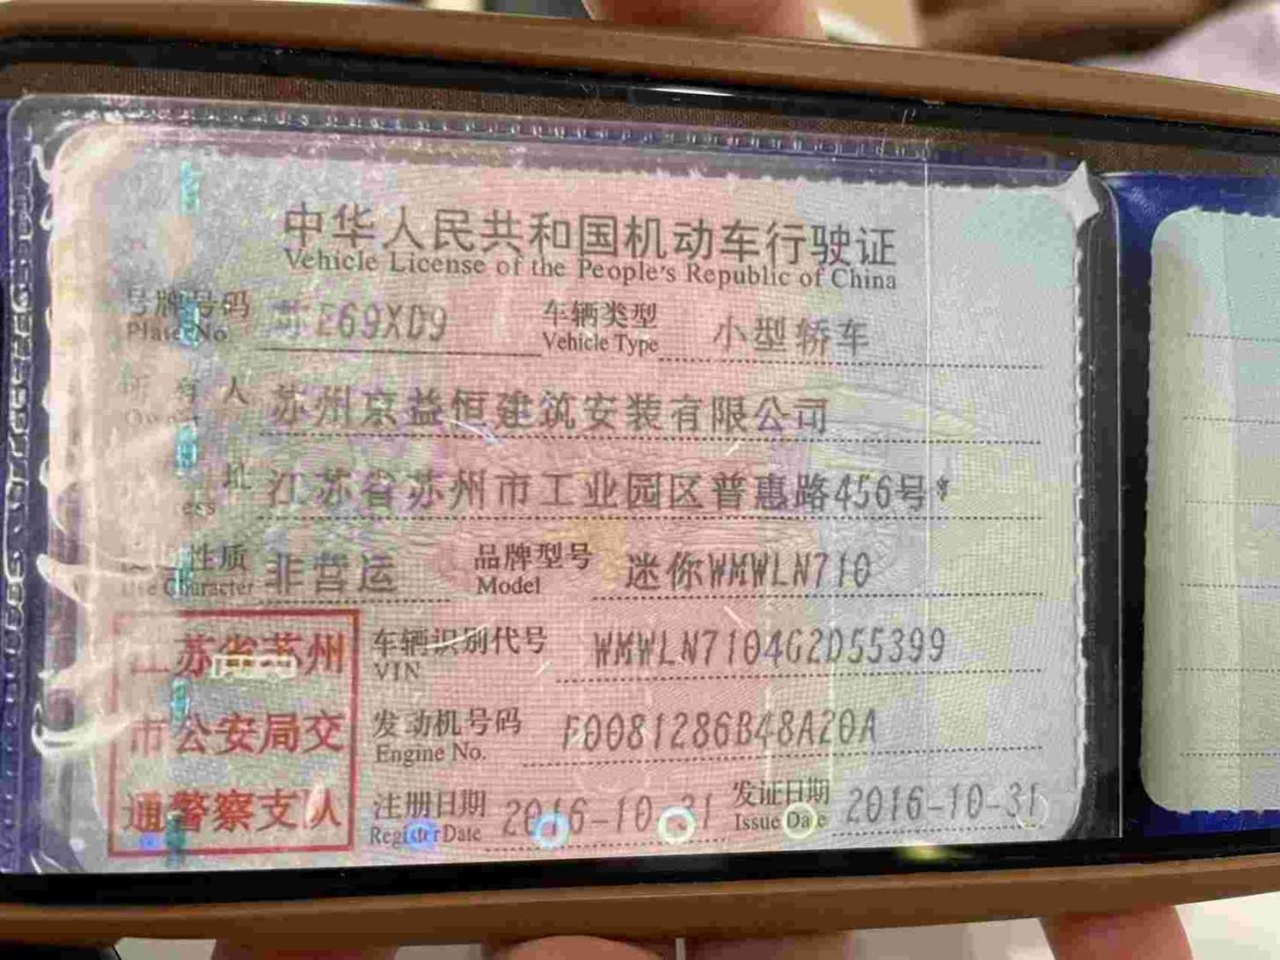 中华人民共和国机动车行驶证
Vehicle License of the People's Republic of China
号牌号码 苏E69XD9 车辆类型 小型轿车
Plate No. Vehicle Type
所有人 苏州京益恒建筑安装有限公司
Owner
址 江苏省苏州市工业园区普惠路456号*
ess
性质 非营运 品牌型号 迷你WMWLN710
Use Character Model
江苏省苏州
市公安局交
通警察支队
车辆识别代号 WMWLN7104G2D55399
VIN
发动机号码 F0081286B48A20A
Engine No.
注册日期 2016-10-31 发证日期 2016-10-31
Register Date Issue Date